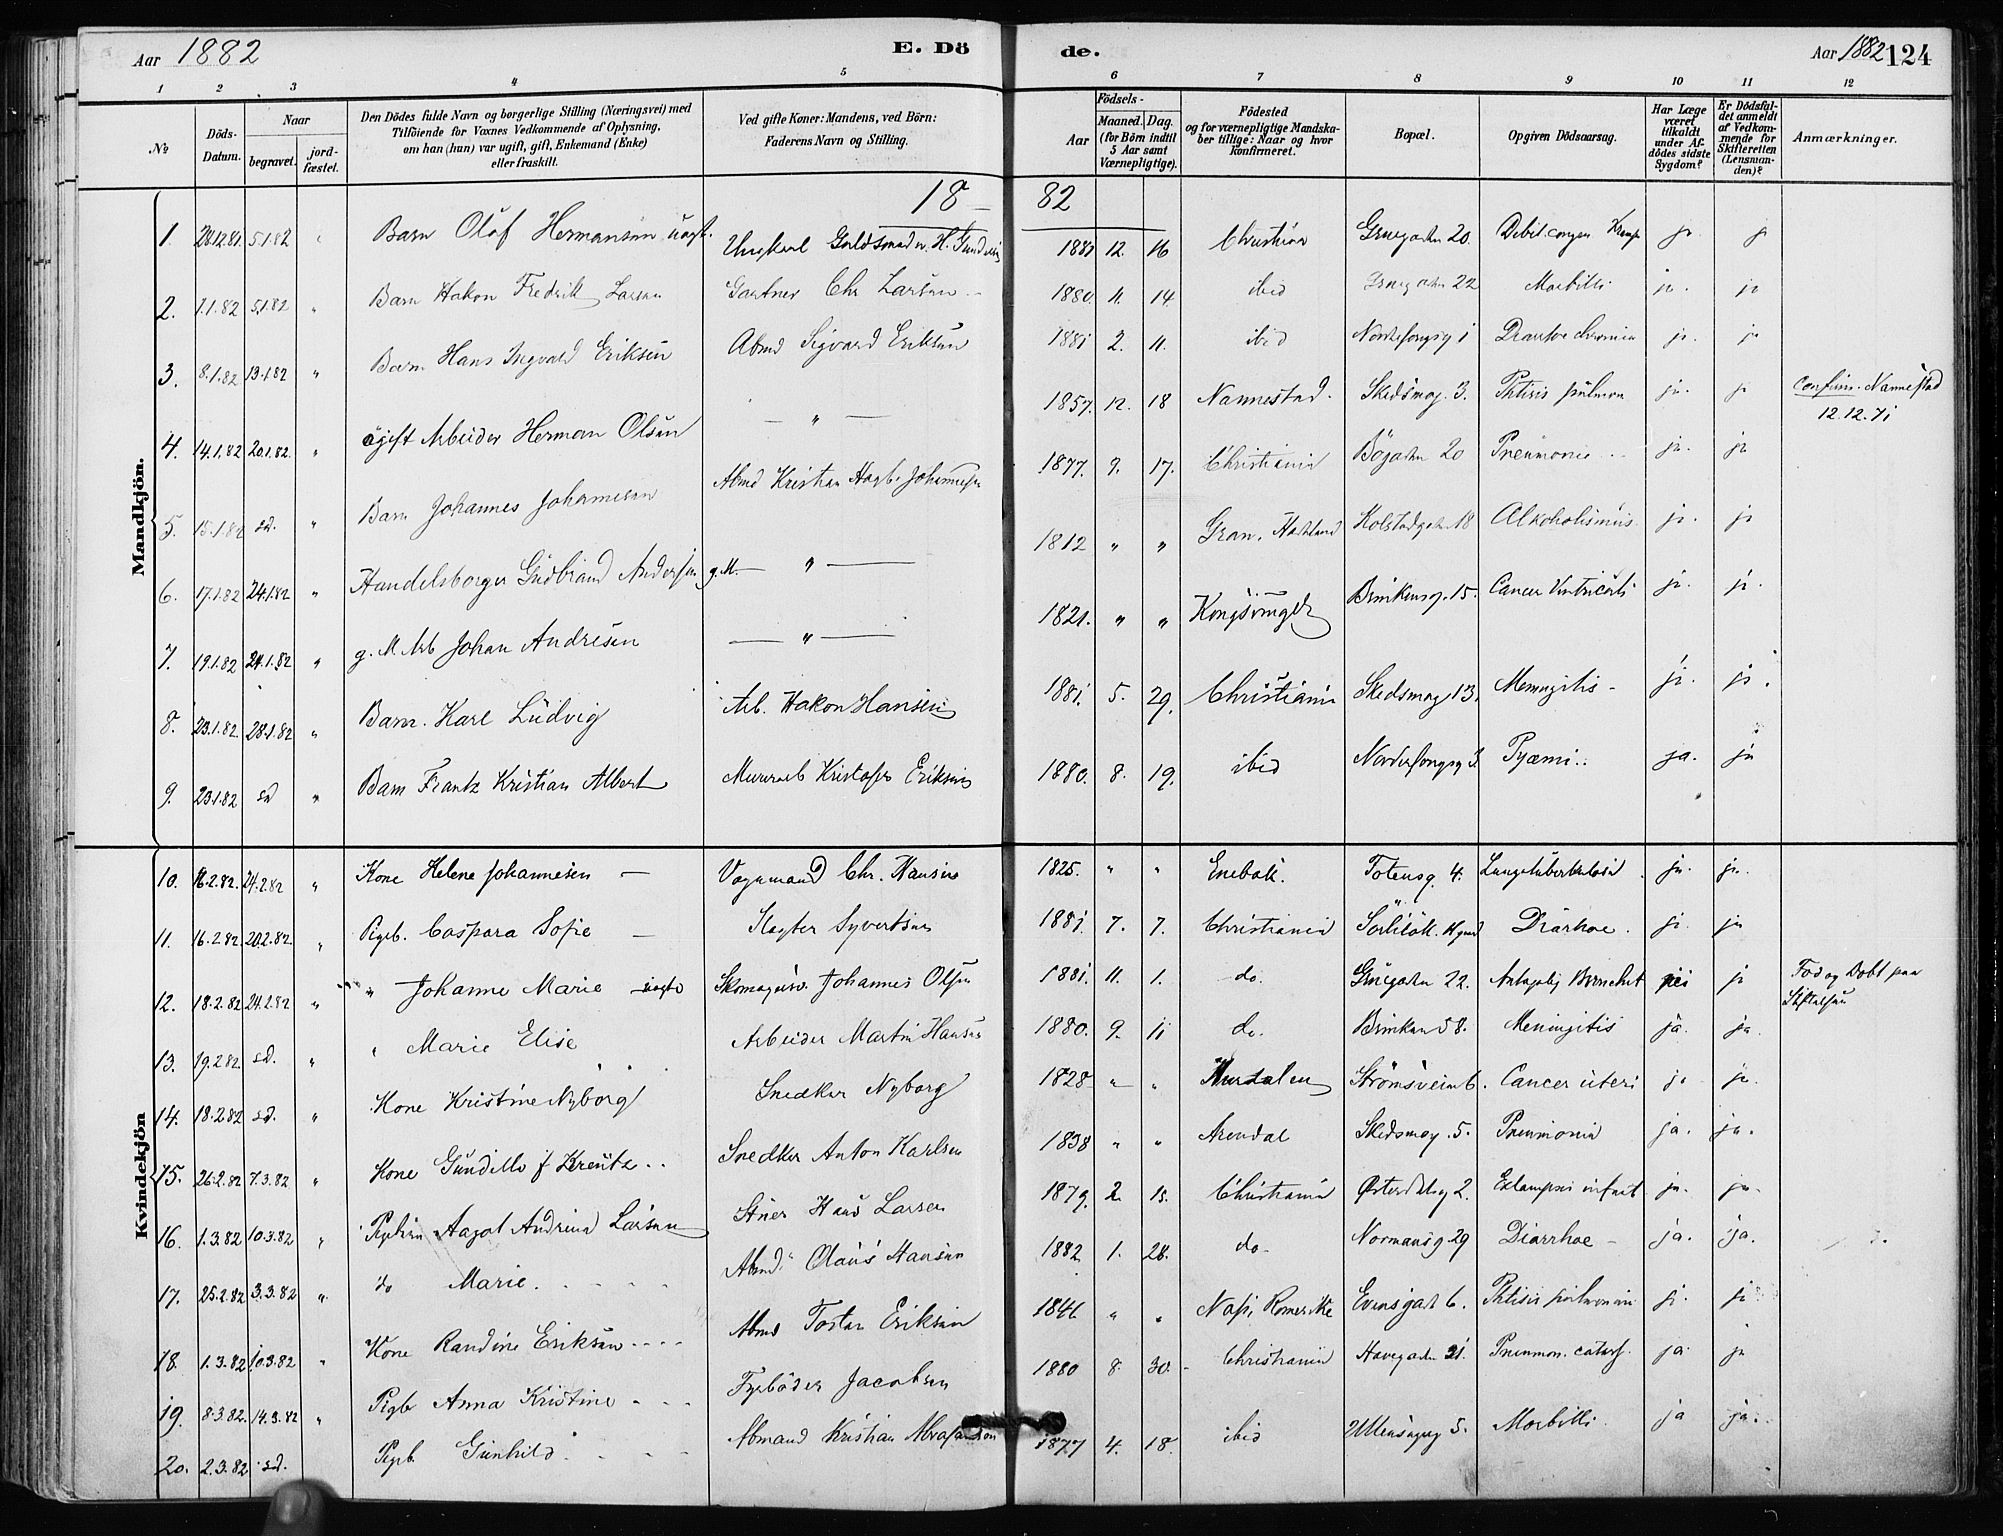 Aar 1882
E. Dö
de.
Aar 1882 124
1 2 3 4 5 6 7 8 9 10 11 12
No
Döds-Datum.
Naar
begravet.
jord-fæstet.
Den Dödes fulde Navn og borgerlige Stilling (Næringsvei) med
Tilföiende for Voxnes Vedkommende af Oplysning,
om han (hun) var ugift, gift, Enkemand (Enke)
eller fraskilt.
Ved gifte Koner: Mandens, ved Börn:
Faderens Navn og Stilling.
Födsels-
Aar
Maaned. Dag.
(for Börn indtil
5 Aar samt
Værnepligtige).
Födested
og for værnepligtige Mandska-
ber tillige: Naar og hvor
konfirmeret.
Bopæl.
Opgiven Dödsaarsag.
Har Læge
været
tilkaldt
under Af-
dödes sidste
Sygdom?
Er Dödsfal-
det anmeldt
af Vedkom-
mende for
Skifteretten
(Lensman-
den)?
Anmærkninger.
18 — 82
Mandkjön.
1. 28.12.81. 5.1.82 Barn Olaf Hermansen uægt. Ungkarl Guldsmed H. 1881 12. 16 Christiania Gruegaden 20. ja ja
2. 1.1.82 5.1.82 " Barn Hakon Fredrik Larsen Gartner Chr Larsen 1880. 11. 14 ibid Gruegaden 22 Morbilli ja. ja
3. 8.1.82 13.1.82 " Barn Hans Ingvald Eriksen Abmd Sigvard Eriksen 1881 2. 11. ibid ja. ja
4. 14.1.82 20.1.82. " ugift Arbeider Herman Olsen — " — 1857. 12. 18 Nannestad. Skedsmog. 3. Phtisis pulmon ja. ja Confirm. Nannestad
12.12.71
5. 15.1.82 sd. " Barn Johannes Johannesen Abmd Kristian Johannesen 1877. 9. 17. Christiania Bögaden 20 Pneumonie ja. ja
6. 17.1.82 24.1.82 " Handelsborger Gudbrand Andersen g.M. — " — 1812 " " Gran, Hadeland Kolstadgd. 18 Alkoholismus. ja. ja
7. 19.1.82 24.1.82 " g. M. Arb Johan Andresen — " — 1821. " " Kongsvinger Brinkensg. 15. Cancer Ventriculi ja. ja.
8. 23.1.82. 28.1.82 " Barn. Karl Ludvig Arb. Hakon Hansen 1881. 5. 29. Christiania Skedsmog 13. Meningitis ja. ja.
9. 23.1.82 sd " Barn Frantz Kristian Albert Murerarb Kristofer Eriksen 1880. 8. 19. ibid Pyæmi ja. ja
Kvindekjön
10. 16.2.82. 24.2.82 " Kone Helene Johannesen — Vognmand Chr. Hansen 1825. " " Enebak. Totensg. 4. Lungetuberkulose ja. ja.
11. 16.2.82. 20.2.82. " Pigeb. Caspara Sofie — Slagter Syvertsen 1881. 7. 7. Christiania Diarhoe. ja. ja
12. 18.2.82 24.2.82 " " Johanne Marie uægte Skomagersv. Johannes Olsen 1881. 11. 1. do. Gruegaden 22. nei ja Fød og Døbt paa
Stiftelsen
13. 19.2.82. sd. " " Marie Elise Arbeider Martin Hansen 1880. 9. 11 do. Meningitis ja. ja.
14. 18.2.82 sd. " Kone Kristine Nyborg Snedker Nyborg 1828 " " Hurdalen Strömsveien 6. Cancer uteri ja ja.
15. 26.2.82 7.3.82 " Kone Gundille f Kreutz.. Snedker Anton Karlsen 1838 " " Arendal Skedsmog. 5. Pneumonia ja. ja.
16. 1.3.82 10.3.82 " Pigebarn Aagot Andrina Larsen Hans Larsen 1879. 2. 15. Christiania Østerdalsg 2. Eklampsi infant ja. ja.
17. 25.2.82 3.3.82 " do Marie. Abmd Olaus Hansen 1882 1. 28. do. Normansg 29 Diarrhoe — ja. ja.
18. 1.3.82 10.3.82 " Kone Randine Eriksen Abmd Eriksen 1846 " " Næs, Romerike Evensgade 6. Phtisis pulmonum ja. ja
19. 8.3.82. 14.3.82 " Pigb Anna Kristine Fyrböder Jacobsen 1880 8. 30. Christiania Havegaden Pneumon. catarrh. ja ja
20. 2.3.82 sd. Pigb. Gunhild Abmand Kristian 1877 4. 18. ibid Ullensagerg 5. Morbilli. ja ja.